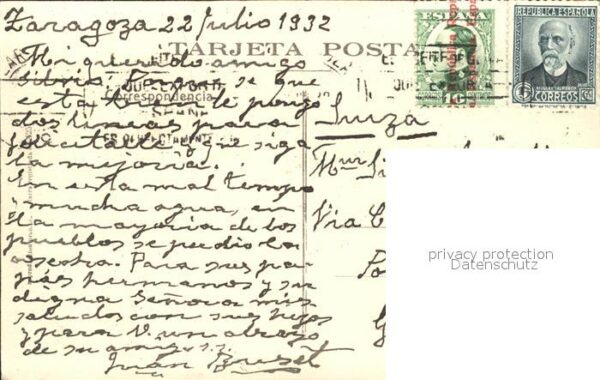 Zaragoza 22 Julio 1932
TARJETA POSTAL
Mi querido amigo
Silvio: Tengo se que
esta V. le pongo
dos lineas para
felicitarle y que siga
la mejoria.
En esta mal tiempo
mucha agua, en
la mayoria de los
pueblos se perdio la
cosecha. Para sus pa
pás hermanos y su
digna Señora mis
saludos con sus hijos
y para V. un abrazo
de su amigo s.s.
Juan
Correspondencia
Suiza
Mur
Via
ESPAÑA
REPUBLICA ESPAÑOLA
CORREOS
privacy protection
Datenschutz